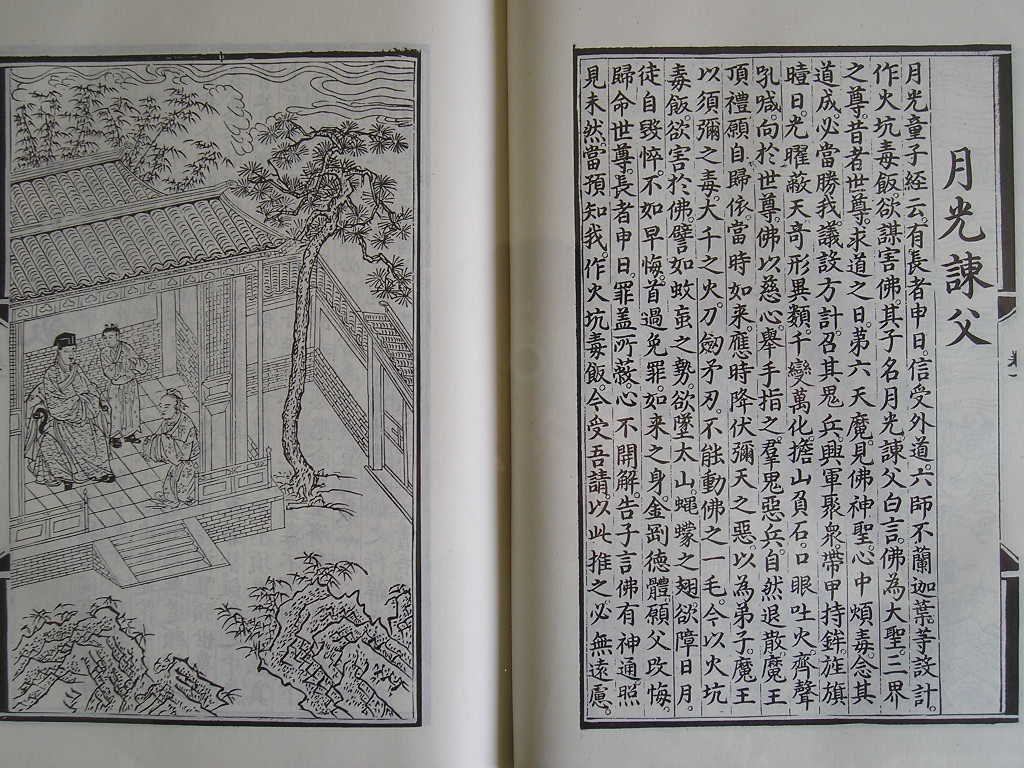 月光諫父
月光童子經云。有長者申日。信受外道。六師不蘭迦葉等設計。
作火坑毒飯。欲謀害佛。其子名月光。諫父白言。佛為大聖。三界
之尊。昔者世尊。求道之日。弟六天魔。見佛神聖。心中煩毒。念其
道成。必當勝我。議設方計。召其鬼兵。興軍聚衆。帶甲持鉾。旌旗
曀日。光曜蔽天。奇形異類。千變萬化。擔山負石。口眼吐火。齊聲
吼喊。向於世尊。佛以慈心。舉手指之。羣鬼惡兵。自然退散。魔王
頂禮。願自歸依。當時如來。應時降伏彌天之惡。以為弟子。魔王
以須彌之毒。大千之火。刀劔矛刃。不能動佛之一毛。今以火坑
毒飯。欲害於佛。譬如蚊䖟之勢。欲墜太山。蝿蠓之翅。欲障日月。
徒自毀悴。不如早悔。首過免罪。如来之身。金剛德體。願父改悔
歸命世尊。長者申日。罪盖所蔽。心不開解。告子言。佛有神通。照
見未然。當預知我。作火坑毒飯。今受吾請。以此推之。必無遠慮。